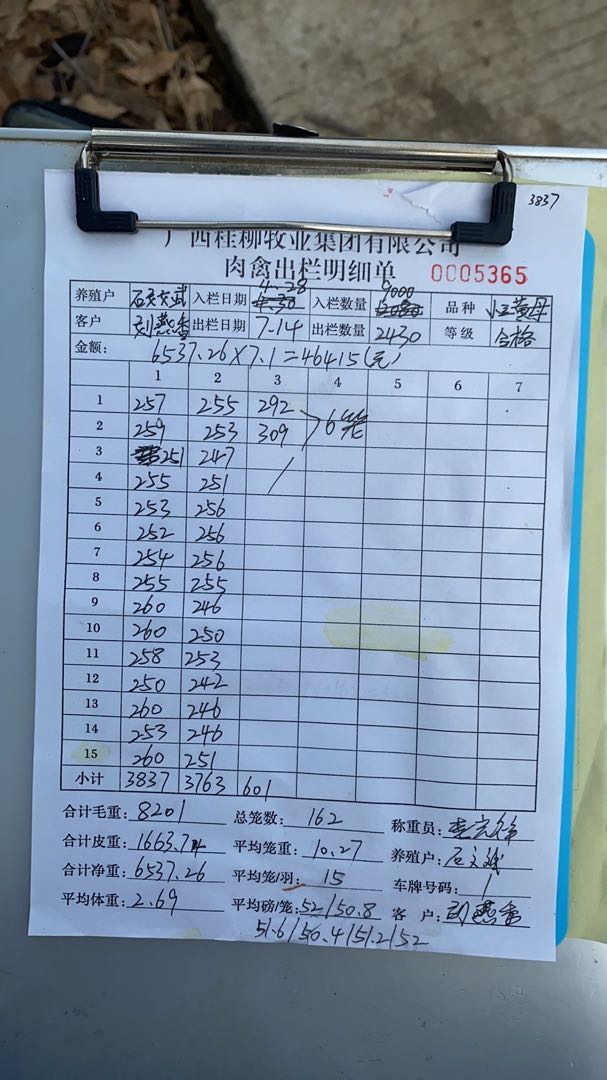 3837
广西桂柳牧业集团有限公司
肉禽出栏明细单 0005365
养殖户 石文武 入栏日期 4.28 入栏数量 9000 品种
客户 刘燕香 出栏日期 7.14 出栏数量 2430 等级 合格
金额: 6537.26×7.1=46415(元)
1 2 3 4 5 6 7
1 257 255 292 6笼
2 259 253 309
3 251 247
4 255 251
5 253 256
6 252 256
7 254 256
8 255 255
9 260 246
10 260 250
11 258 253
12 250 242
13 260 246
14 253 246
15 260 251
小计 3837 3763 601
合计毛重: 8201 总笼数: 162 称重员:
合计皮重: 1663.74 平均笼重: 10.27 养殖户: 石文武
合计净重: 6537.26 平均笼/羽: 15 车牌号码: /
平均体重: 2.69 平均磅/笼: 52/50.8 客户: 刘燕香
51.6/50.4/51.2/52